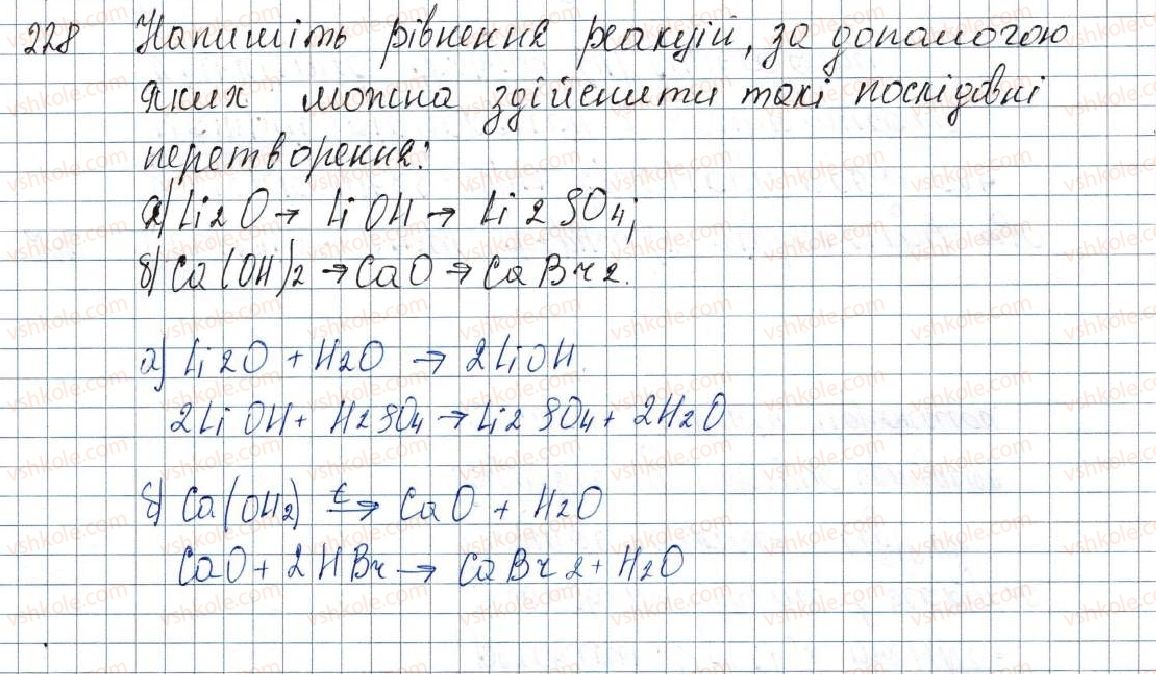 228 Напишіть рівнення реакцій, за допомогою
яких можна здійснити такі послідовні
перетворення:
а) Li2O → LiOH → Li2SO4;
б) Ca(OH)2 → CaO → CaBr2.
а) Li2O + H2O → 2LiOH.
2LiOH + H2SO4 → Li2SO4 + 2H2O
б) Ca(OH2) t→ CaO + H2O
CaO + 2HBr → CaBr2 + H2O
vshkole.com